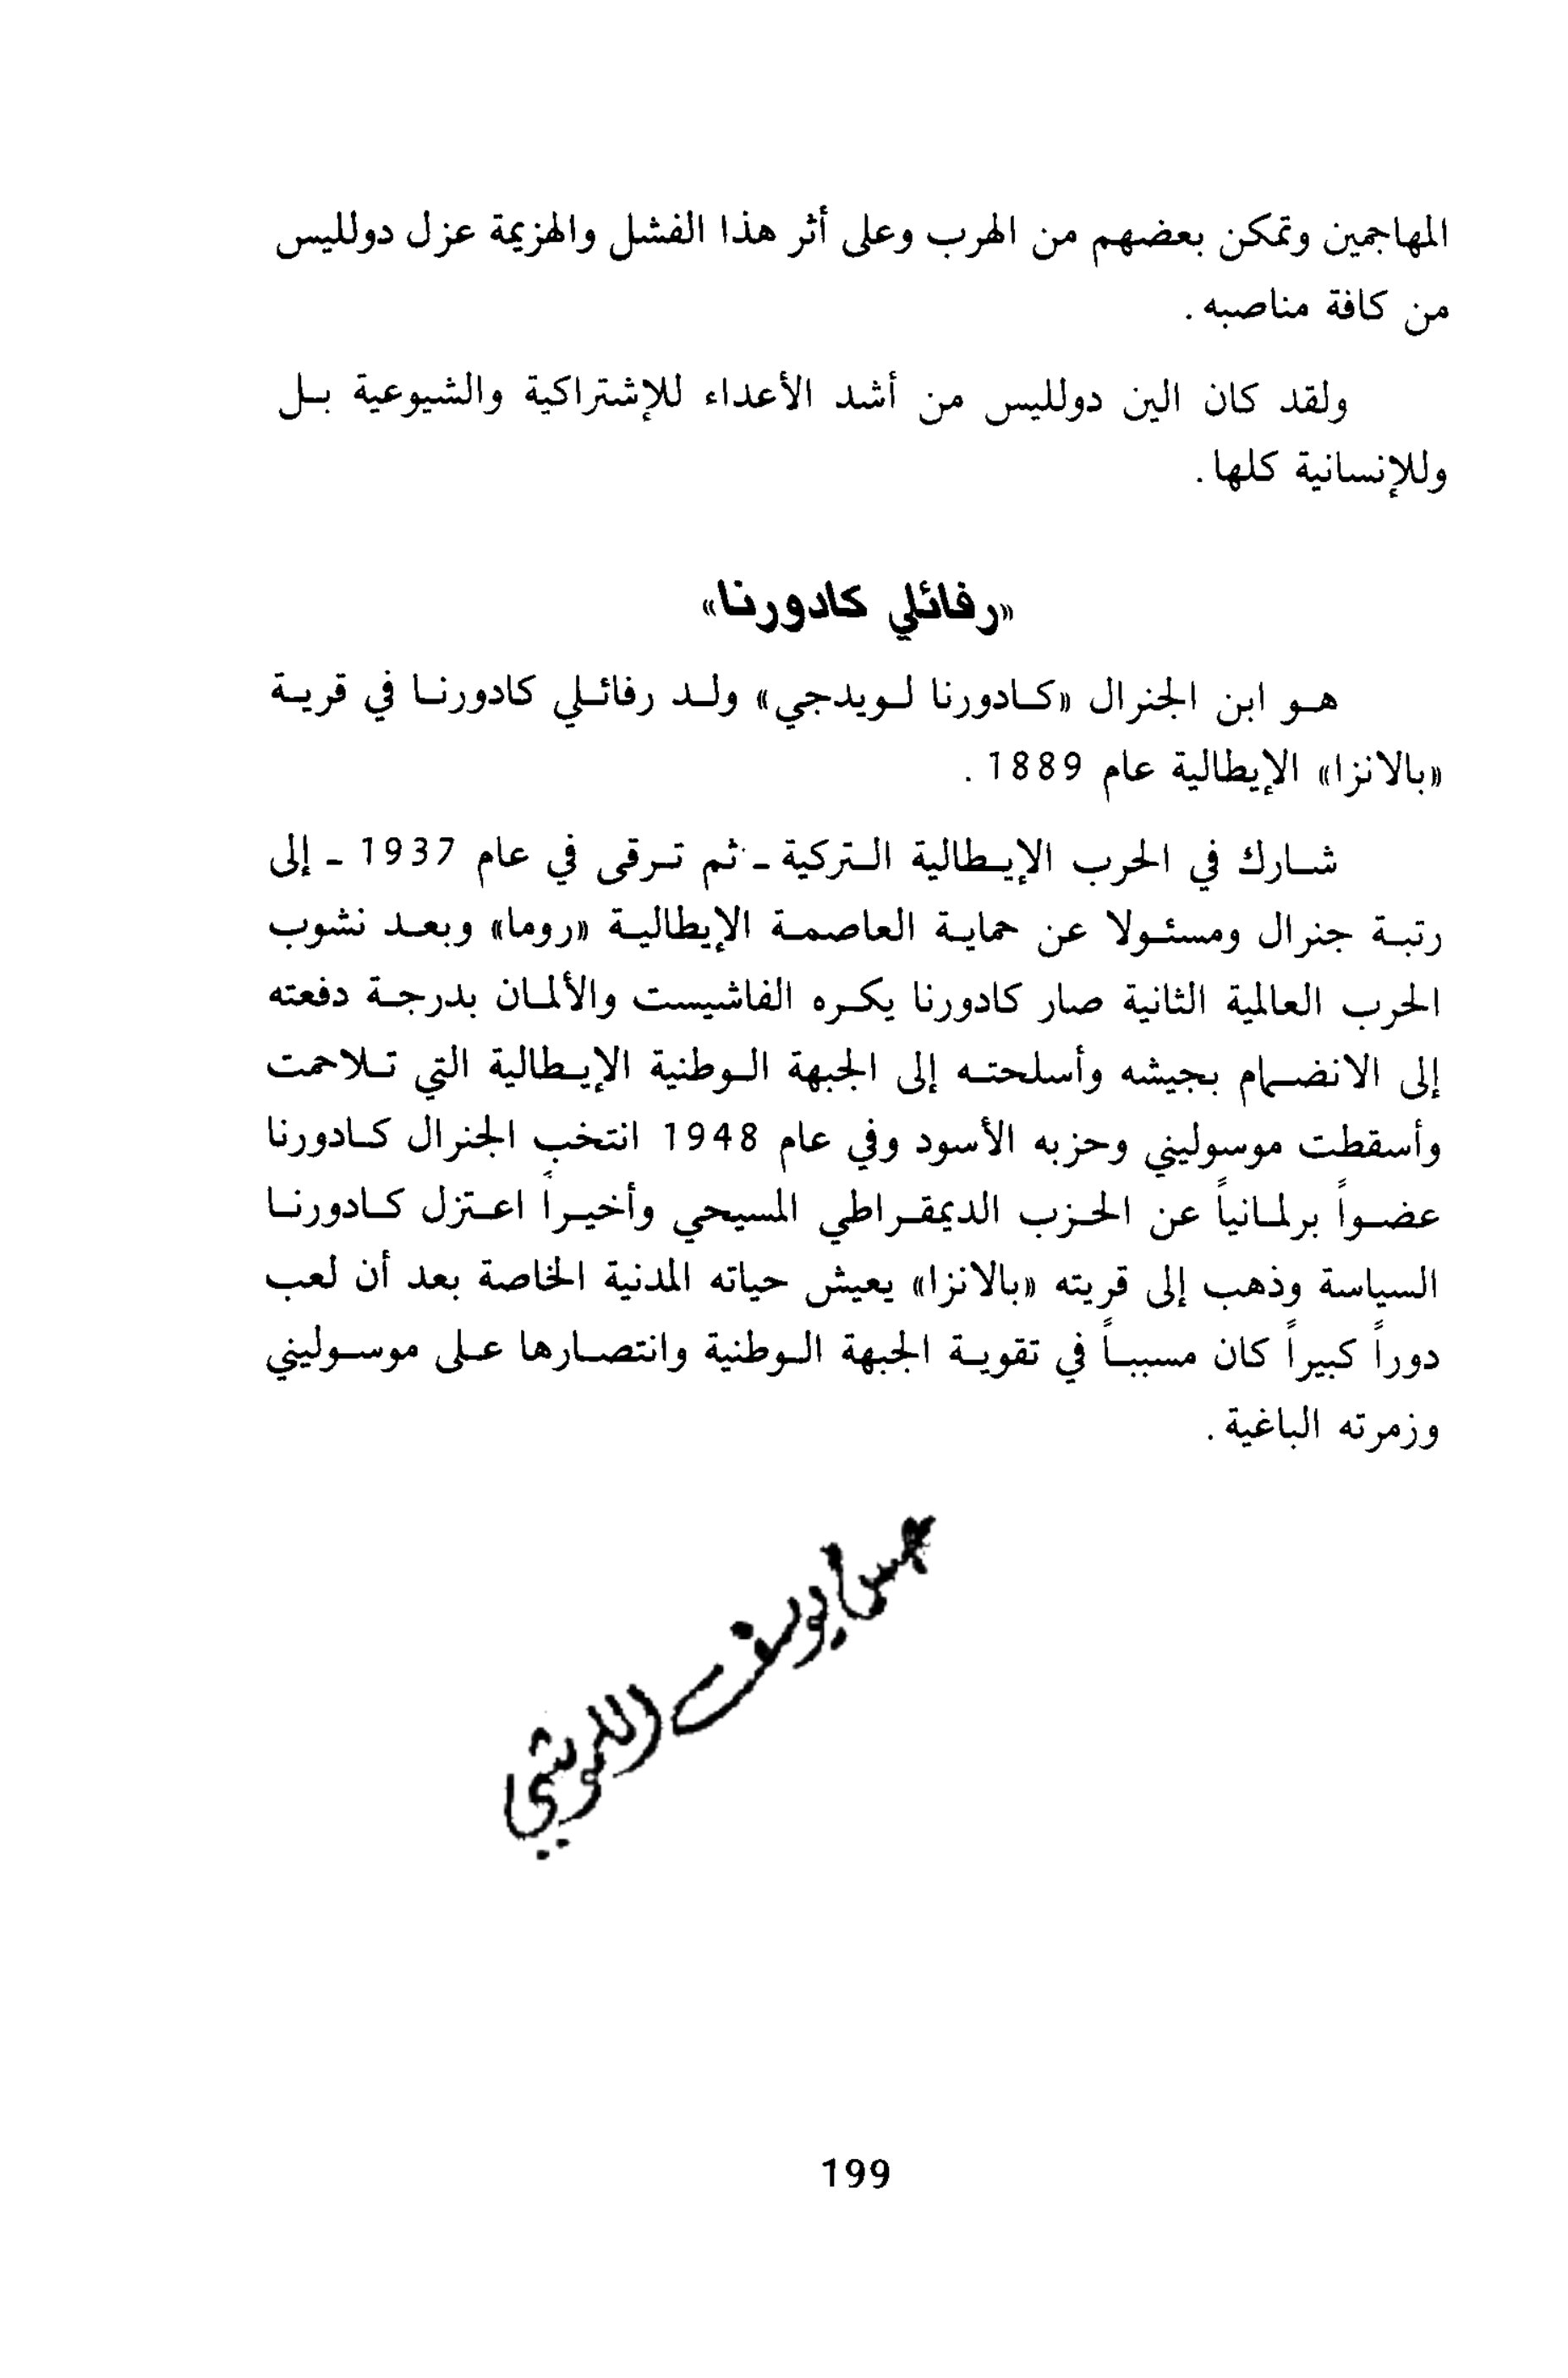 المهاجمين وتمكن بعضهم من الهرب وعلى أثر هذا الفشل والهزيمة عزل دولليس
من كافة مناصبه .
ولقد كان الين دولليس من أشد الأعداء للإشتراكية والشيوعية بل
وللإنسانية كلها .
«رفائلي كادورنا»
هو ابن الجنرال «كادورنا لويدجي» ولد رفائلي كادورنا في قرية
«بالانزا» الإيطالية عام 1889 .
شارك في الحرب الإيطالية التركية - ثم ترقى في عام 1937 - إلى
رتبة جنرال ومسئولا عن حماية العاصمة الإيطالية «روما» وبعد نشوب
الحرب العالمية الثانية صار كادورنا يكره الفاشيست والألمان بدرجة دفعته
إلى الانضمام بجيشه وأسلحته إلى الجبهة الوطنية الإيطالية التي تلاحمت
وأسقطت موسوليني وحزبه الأسود وفي عام 1948 انتخب الجنرال كادورنا
عضواً برلمانياً عن الحزب الديمقراطي المسيحي وأخيراً اعتزل كادورنا
السياسة وذهب إلى قريته «بالانزا» يعيش حياته المدنية الخاصة بعد أن لعب
دوراً كبيراً كان مسبباً في تقوية الجبهة الوطنية وانتصارها على موسوليني
وزمرته الباغية .
يوسف
199